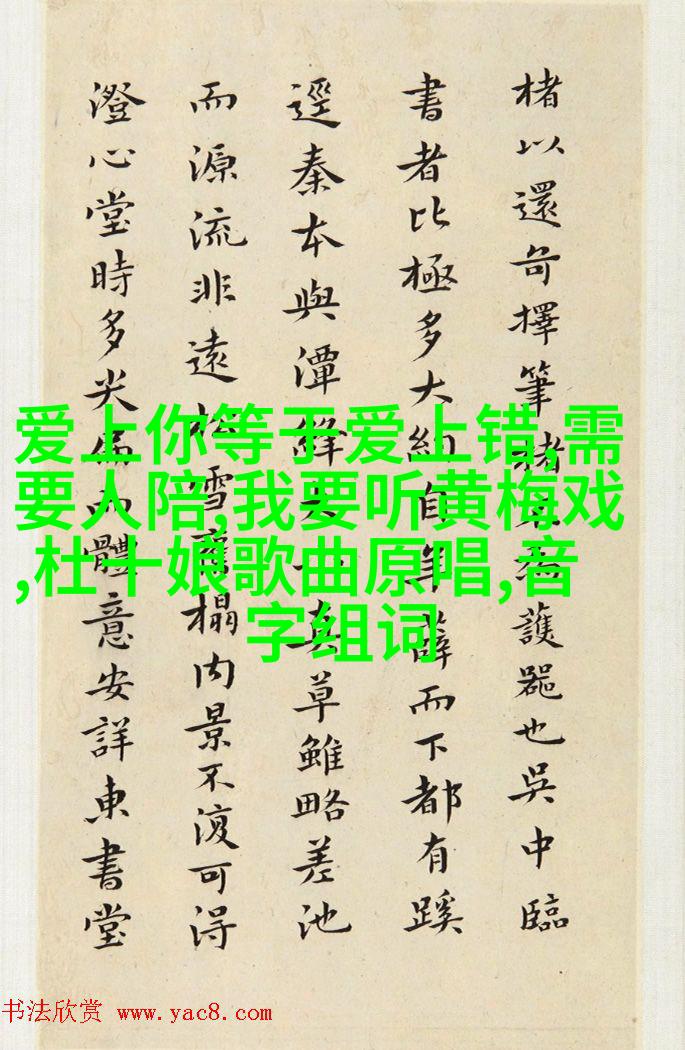 楮以還苟擇筆楮護器也吳中臨
書者比極多大約自羊薛而下都有蹊
逕秦本與潭絳真草雖略差池
而源流非遠松雪舊榻内景不復可得
澄心堂時多尖偏而體意安詳東書堂
爱上你等于爱上错,需
要人陪,我要听黄梅戏
,杜十娘歌曲原唱,音
字组词
书法欣赏 www.yac8.com